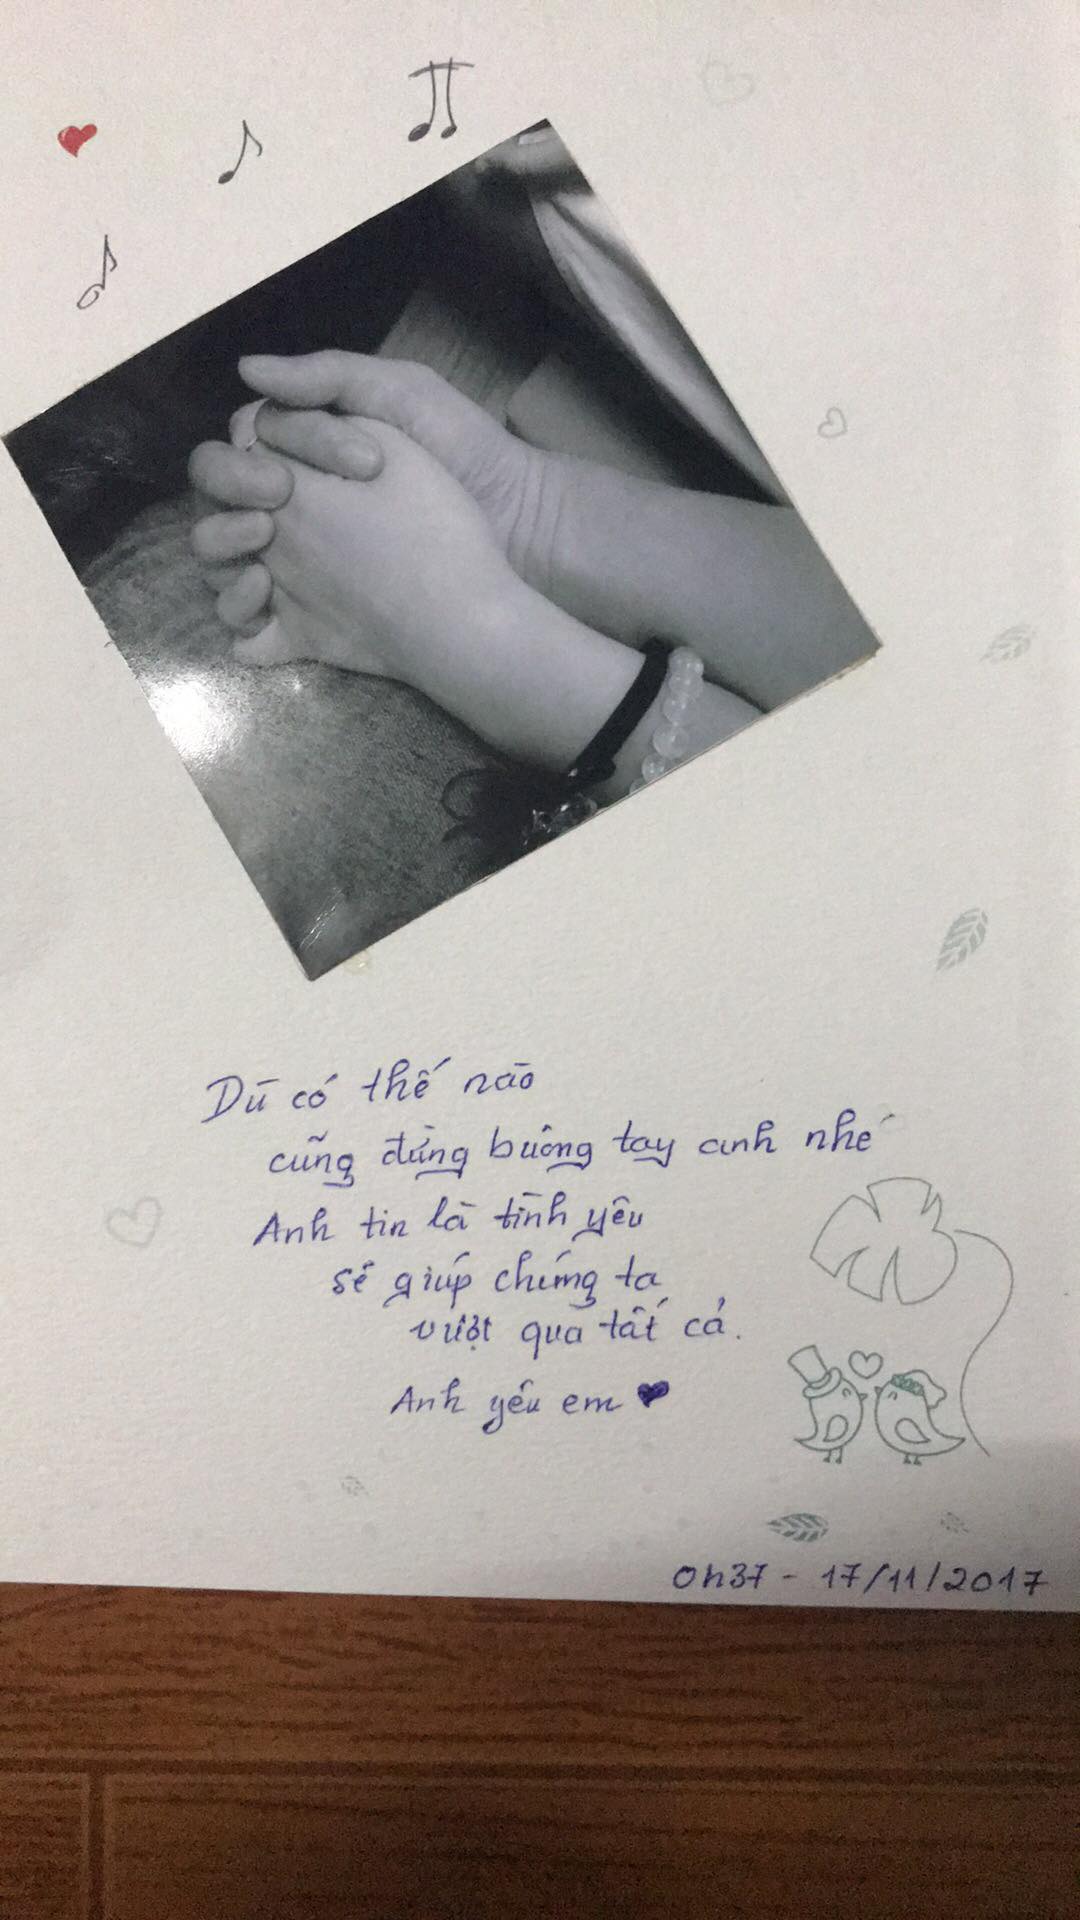 Dù có thế nào
cũng đừng buông tay anh nhé
Anh tin là tình yêu
sẽ giúp chúng ta
vượt qua tất cả.
Anh yêu em
0h37 - 17/11/2017